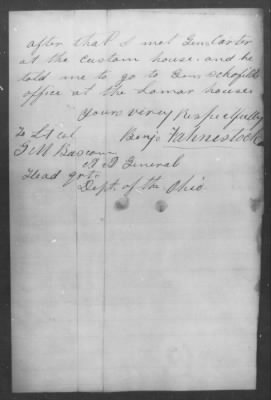 after that I met Gen Carter
at the custom house and he
told me to go to Gen Schofields
office at the Lamar house
Yours verey Respectfully
To Lt Col Benj Fahnestock
G M Bascom
A A General
Head qrts
Dept. of the Ohio